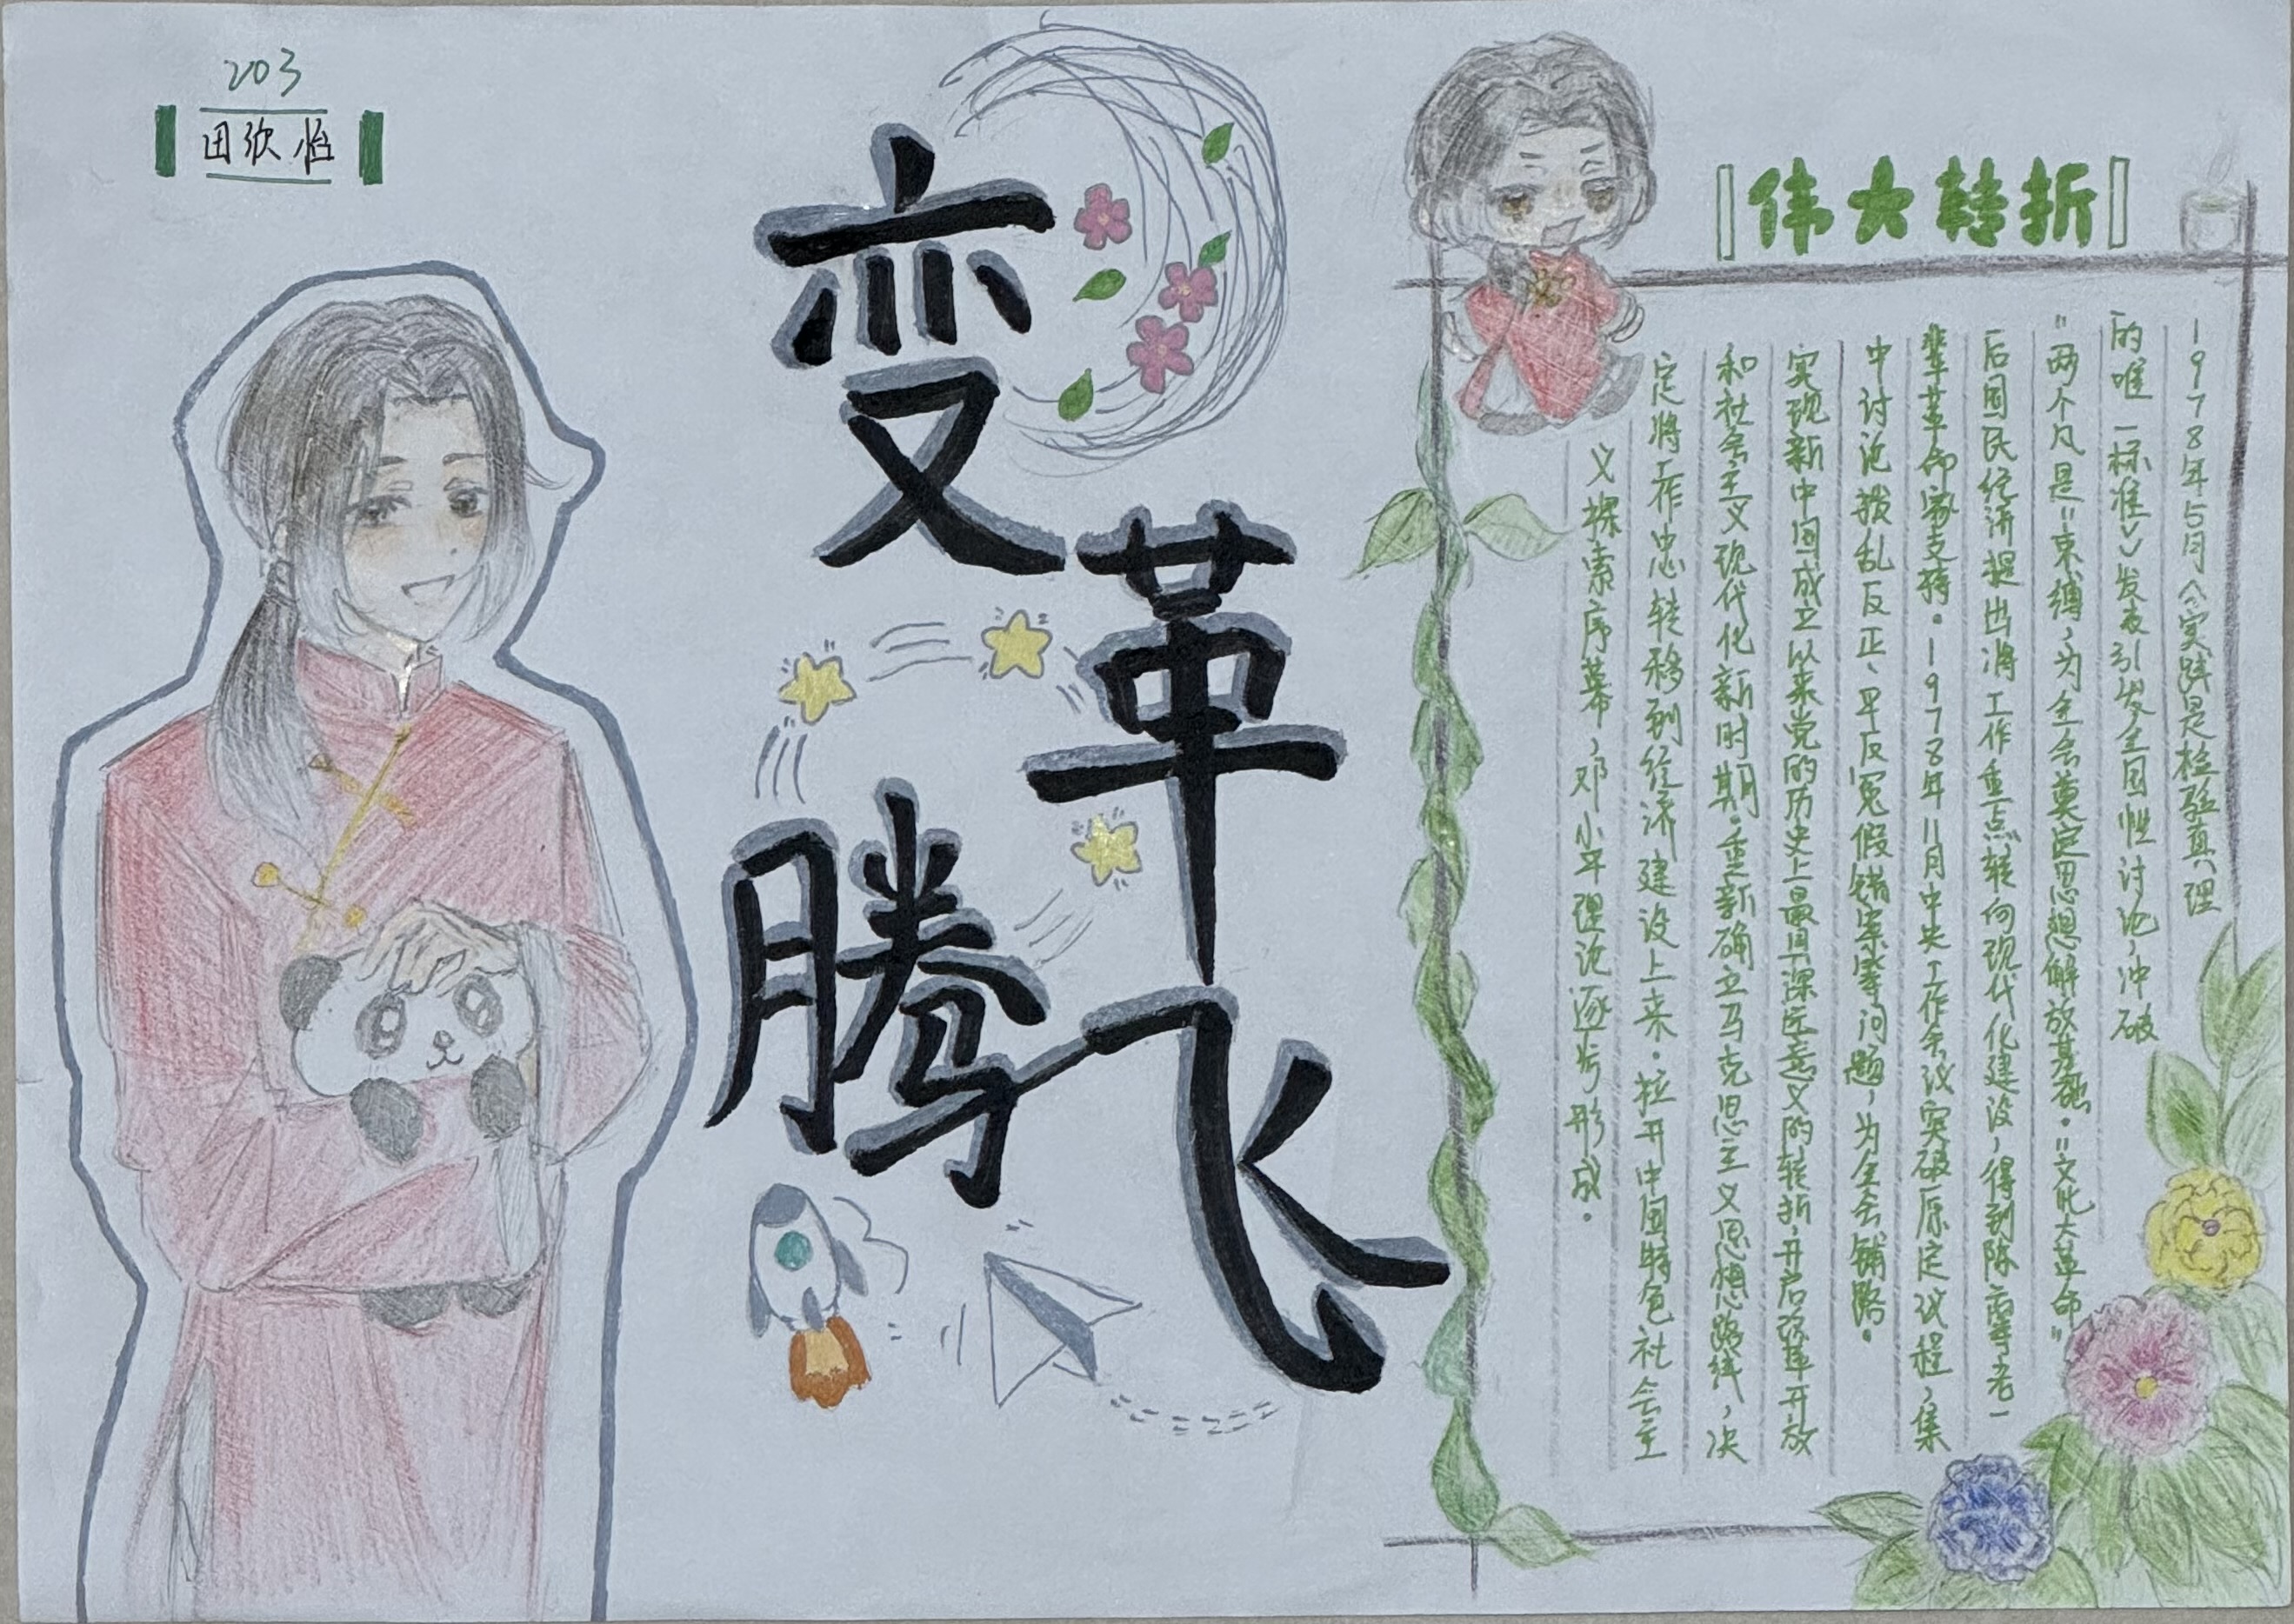 203
田欣怡
变革
腾飞
伟大转折
1978年5月《实践是检验真理
的唯一标准》发表引发全国性讨论，冲破
"两个凡是"束缚，为全会奠定思想解放基础。"文化大革命"
后国民经济提出将工作重点转向现代化建设，得到陈云等老一
辈革命家支持。1978年11月中央工作会议突破原定议程，集
中讨论拨乱反正、平反冤假错案等问题，为全会铺路。
实现新中国成立以来党的历史上最具深远意义的转折，开启改革开放
和社会主义现代化新时期。重新确立马克思主义思想路线，决
定将工作中心转移到经济建设上来。拉开中国特色社会主
义探索序幕，邓小平理论逐步形成。